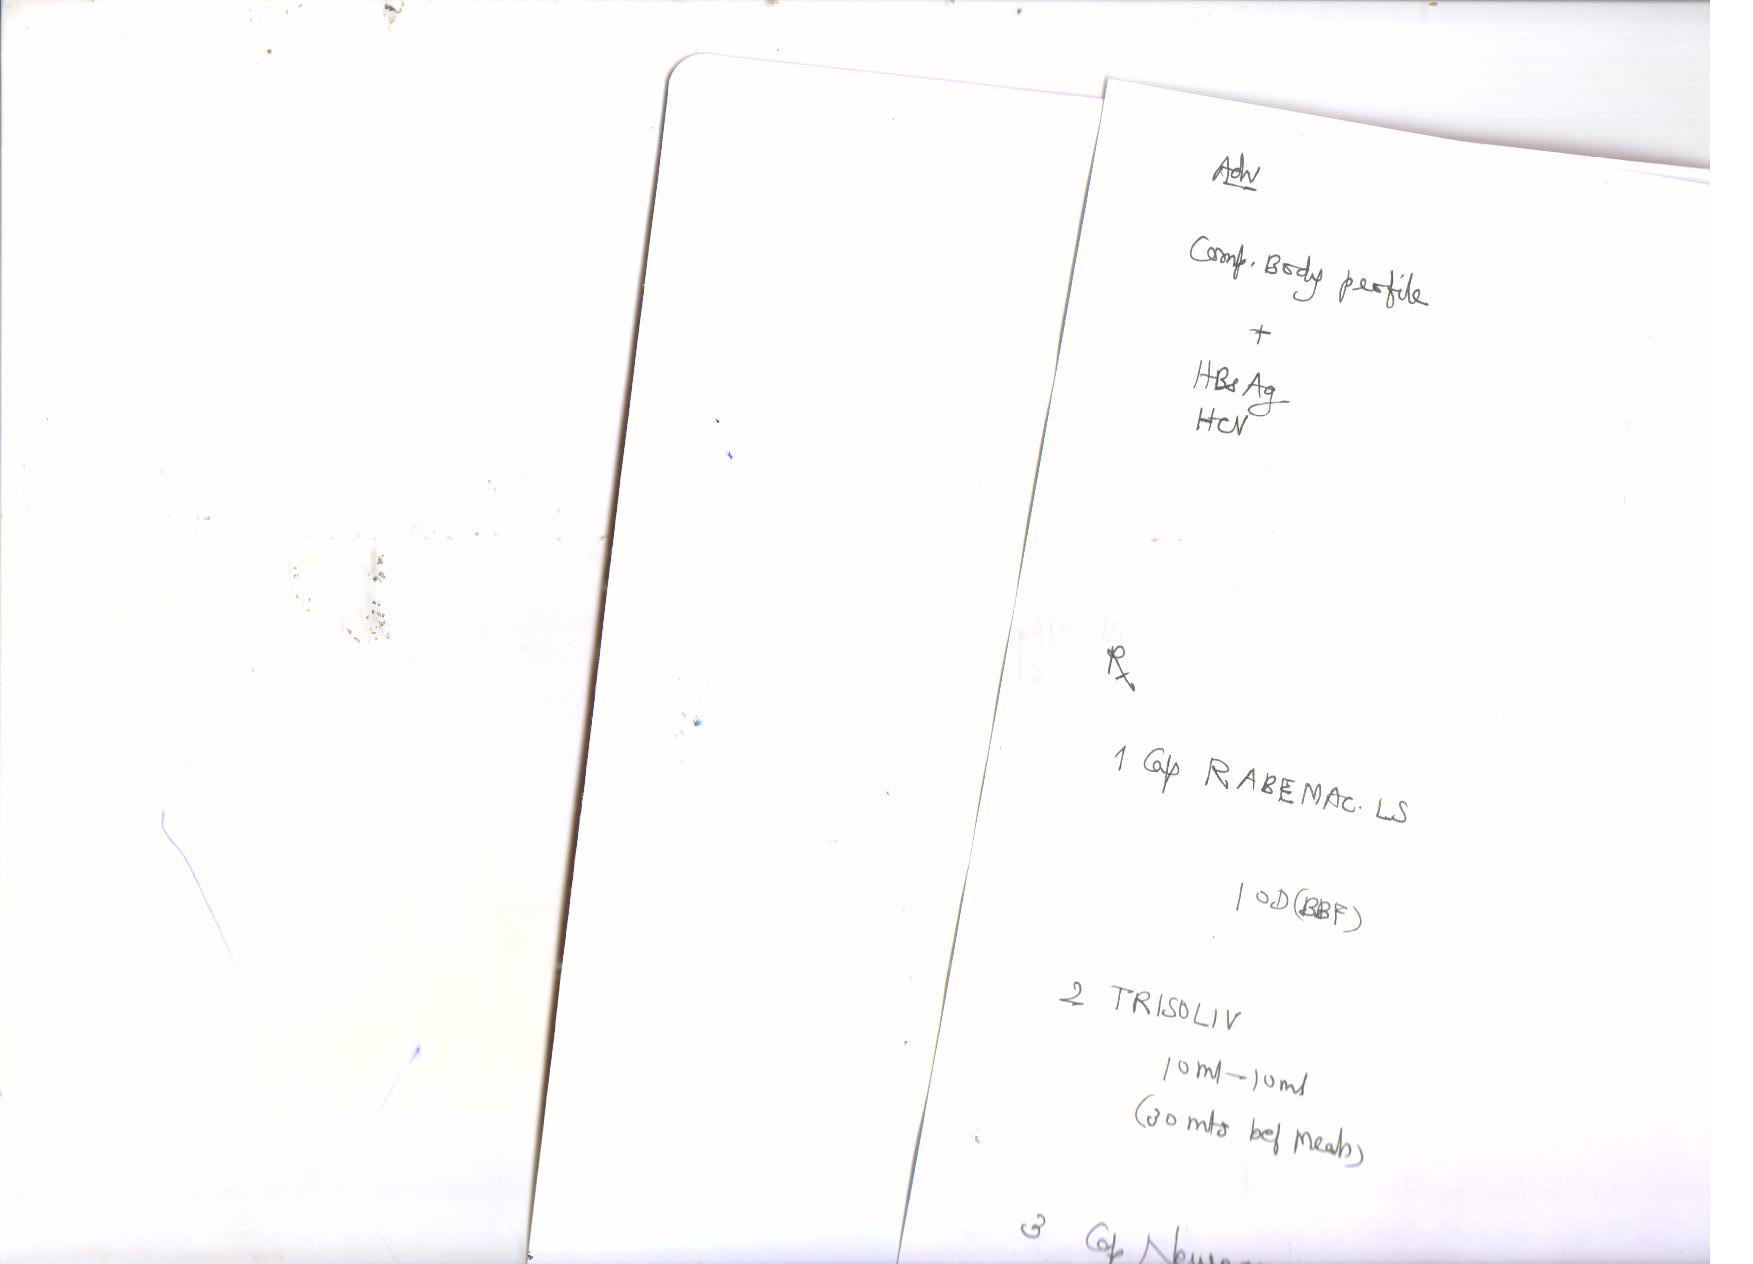 Adv
Comp. Body perfile
+
HBsAg
HCV
Rx
1 Cap RABEMAC. LS
1 OD (BBF)
2 TRISOLIV
10ml-10ml
(30 mts bef meals)
3 Cap